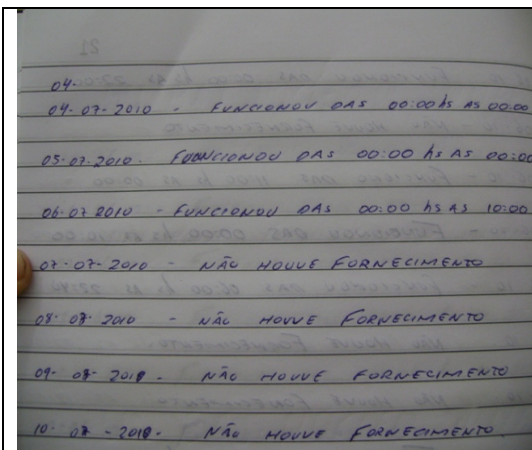 04-
04-07-2010 - FUNCIONOU DAS 00:00 hs AS 00:00
05-07-2010. FUONCIONOU DAS 00:00 hs AS 00:00
06-07 2010 - FUNCIONOU DAS 00:00 hs AS 10:00
07-07-2010 - NÃO HOUVE FORNECIMENTO
08-07-2010 - NÃO HOUVE FORNECIMENTO
09-07-2010. NÃO HOUVE FORNECIMENTO
10-07-2010. NÃO HOUVE FORNECIMENTO.